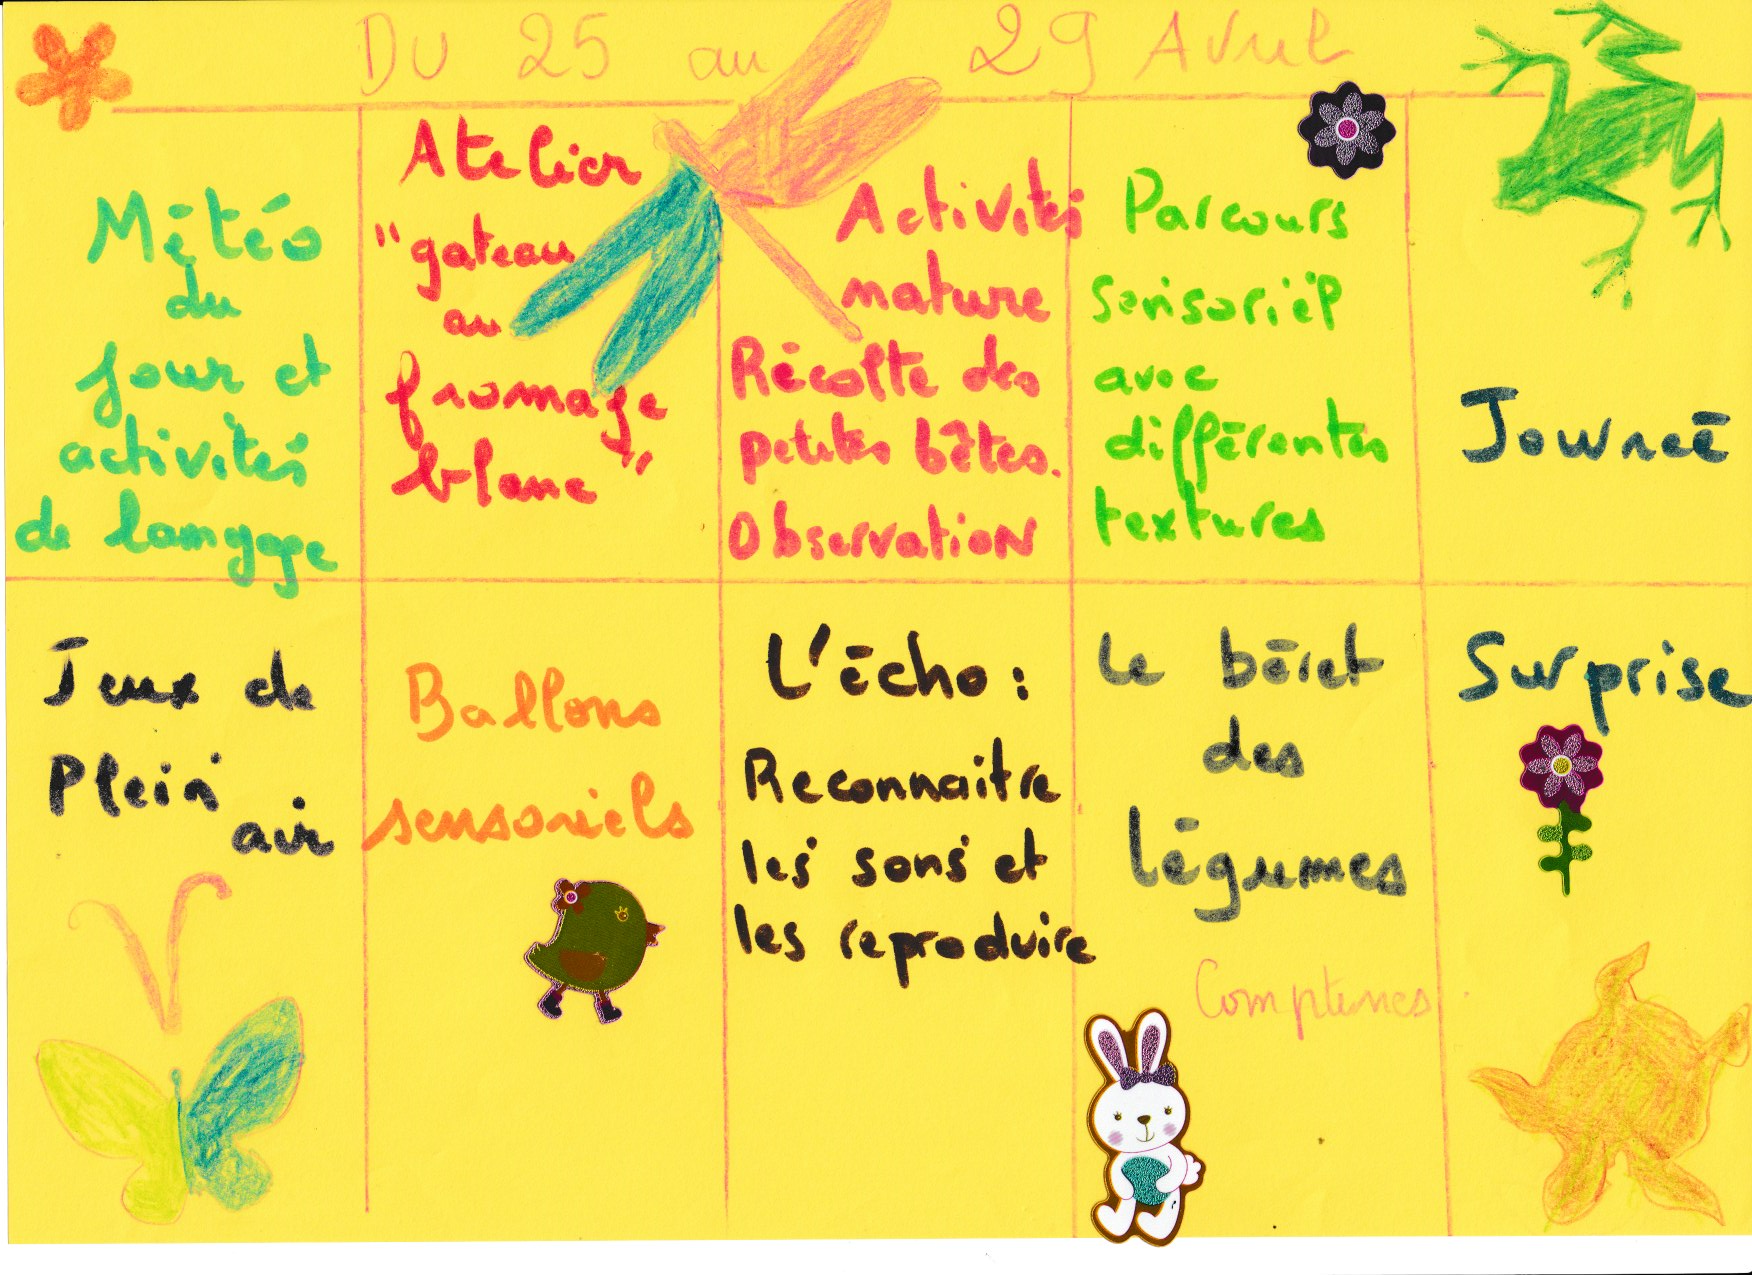 Du 25 au 29 Avril
Météo
du
jour et
activités
de langage
Atelier
"gateau
au
fromage
blanc"
Activités
nature
Récolte des
petites bêtes.
Observation
Parcours
sensoriel
avec
différentes
textures
Journée
Jeux de
Plein
air
Ballons
sensoriels
L'écho :
Reconnaitre
les sons et
les reproduire
Le béret
des
légumes
Comptines
Surprise